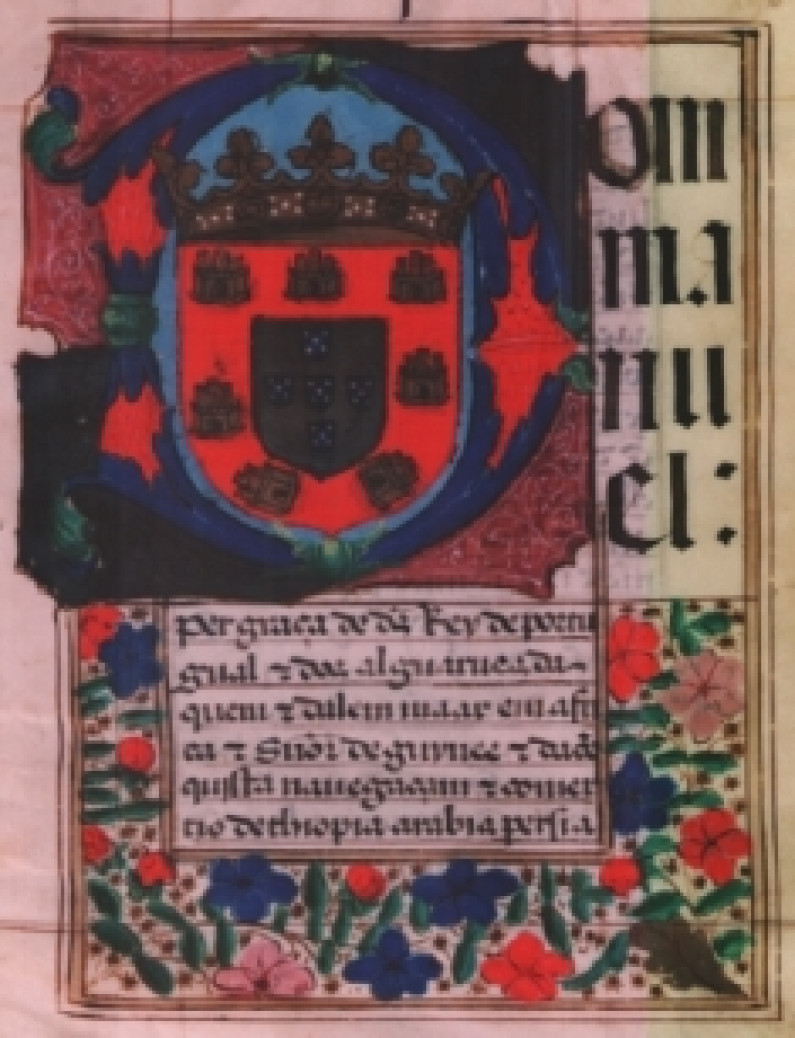 Dom
ma
nu
el:
per graça de ds̃ Rey de portu
gual ⁊ dos alguarues da-
quem ⁊ dalem maar em afri
ca ⁊ Sñor de guynee ⁊ da cõ
quista nauegaçam ⁊ comer
cio dethiopia arabia persia